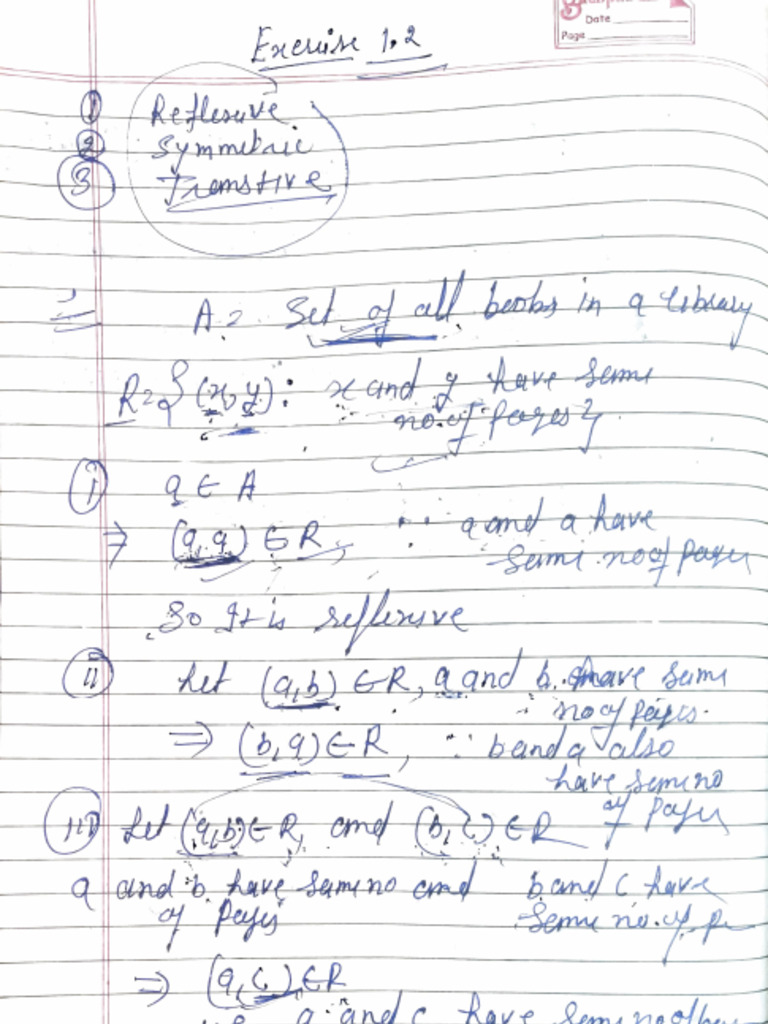 Date
Page
Exercise 1.2
① Reflexive
② Symmetric
③ Transtive
A = Set of all books in a library
R = { (x, y) : x and y have same
no. of pages }
(i) a ∈ A
⇒ (a, a) ∈ R, ∵ a and a have
same no of pages
So It is reflexive
(ii) Let (a, b) ∈ R, a and b have same
no of pages.
⇒ (b, a) ∈ R, ∵ b and a also
have same no
of pages
(iii) Let (a, b) ∈ R, and (b, c) ∈ R
a and b have same no and b and c have
of pages same no. of p
⇒ (a, c) ∈ R
a and c have same no of